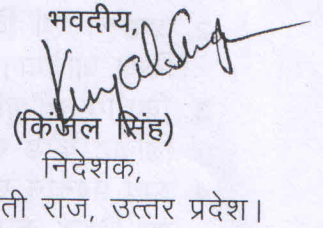 भवदीय,
(किंजल सिंह)
निदेशक,
ती राज, उत्तर प्रदेश।